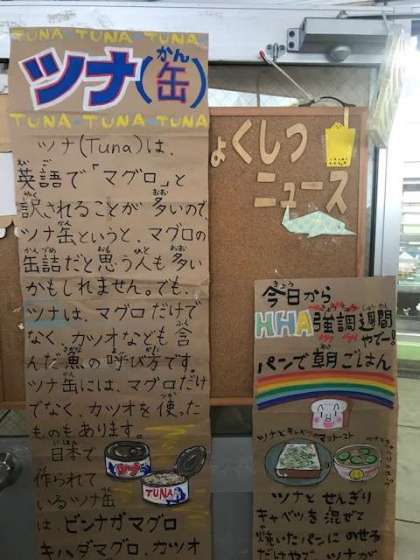 TUNA TUNA TUNA
かん
ツナ(缶)
TUNA・TUNA・TUNA
ツナ(Tuna)は、
えいご
英語で「マグロ」と
やく おお
訳されることが多いので、
ツナ缶というと、マグロの
かんづめ おも ひと おお
缶詰だと思う人も多い
かもしれません。でも、
ツナは、マグロだけで
なく、カツオなども含
んだ魚の呼び方です。
ツナ缶には、マグロだけ
でなく、カツオを使った
ものもあります。
日本で
作られて
いるツナ缶
は、ビンナガマグロ
キハダマグロ、カツオ
ツナ
TUNA
ょくしつ
ニュース
きょう
今日から
HHA強調週間
やで〜!
パンで朝ごはん
ツナとせんぎり
キャベツを混ぜて
焼いたパンにのせる
だけやで